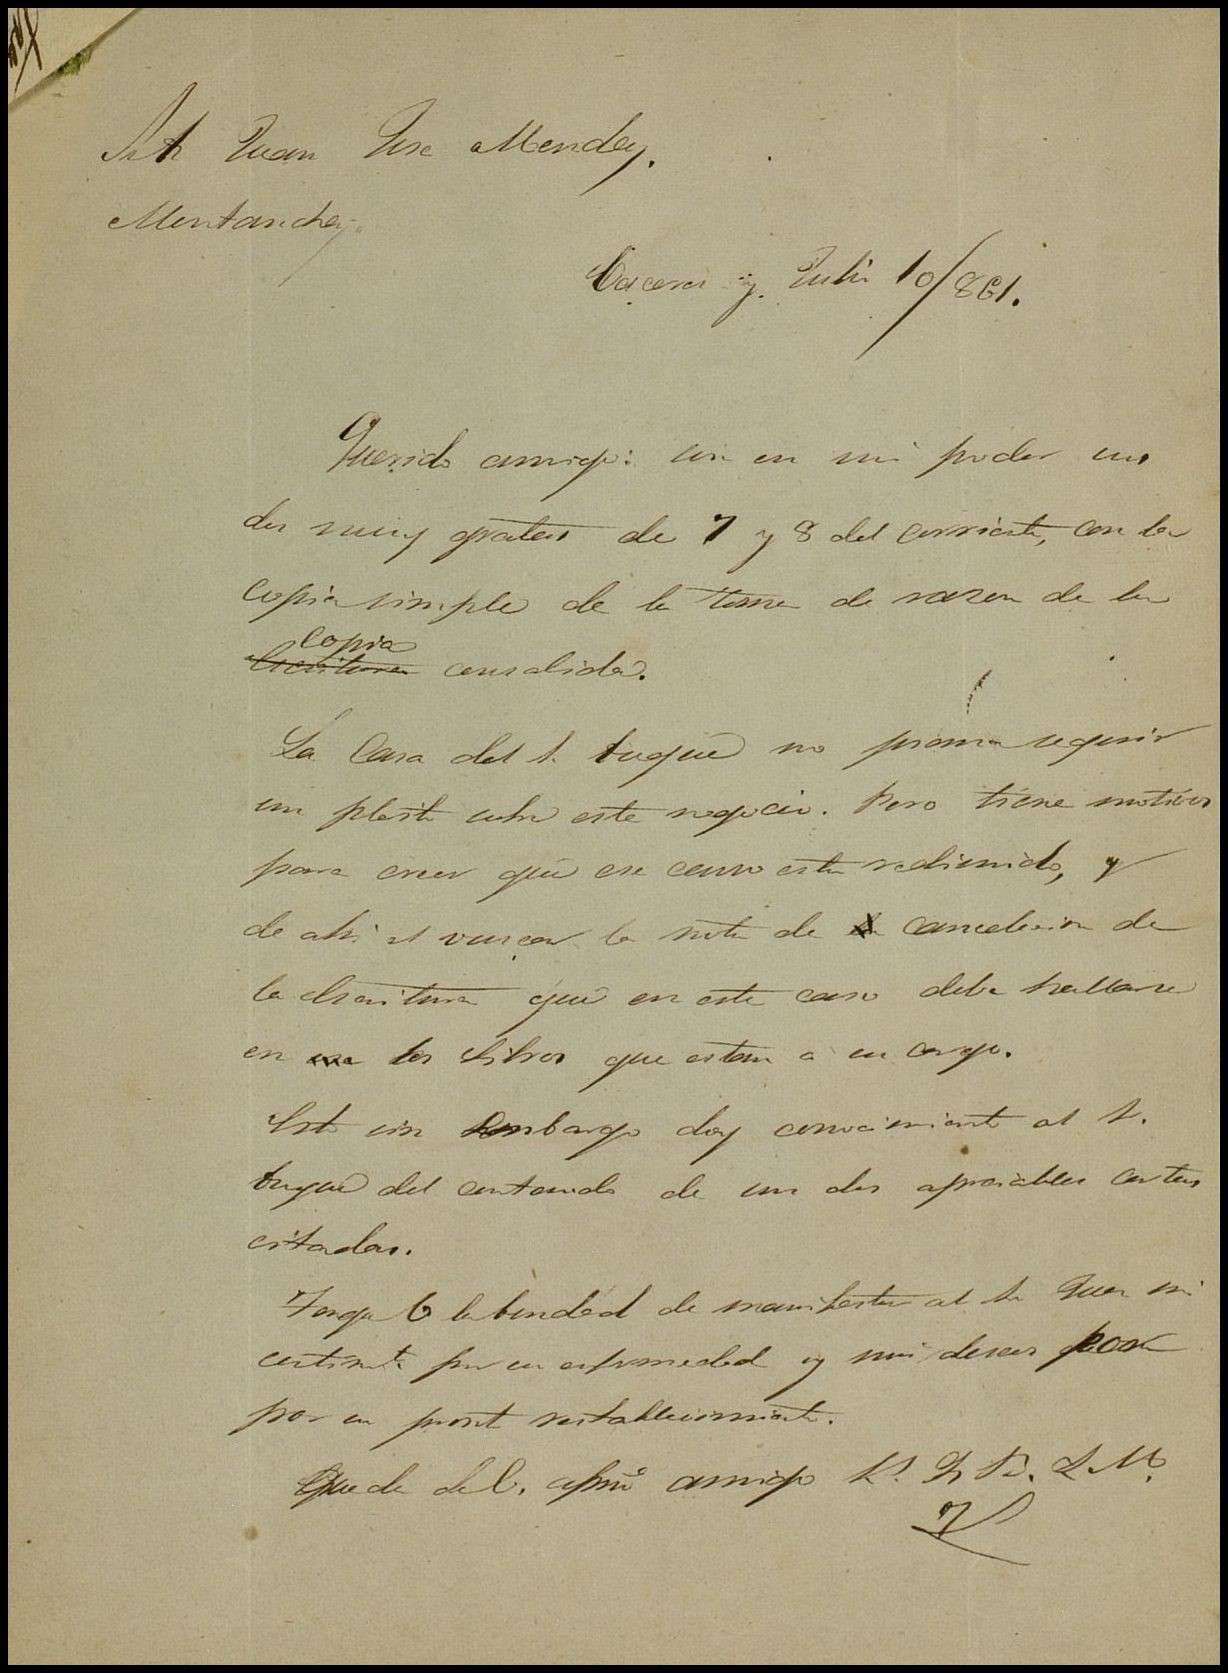 Sr. Dn. Juan Jose Mendez.
Montanchez
Caceres y Julio 10/861.
Querido amigo: son en mi poder sus
dos muy gratas de 7 y 8 del corriente, con la
copia simple de la toma de razon de la
copia
Escritura consabida.
La Casa del S. Duque no piensa seguir
un pleito sobre este negocio. Pero tiene motivos
para creer que ese censo esta redimido, y
de ahi el buscar la nota de cancelacion de
la Escritura que en este caso debe hallarse
en los Libros que estan a su cargo.
Esto sin embargo doy conocimiento al S.
Duque del contenido de sus dos apreciables cartas
citadas.
Tenga V. la bondad de manifestar al Sr. Juez mi
sentimto. por su enfermedad y mis deseos por
por su pronto restablecimiento.
Queda de V. afmo. amigo S. S. Q. B. S. M.